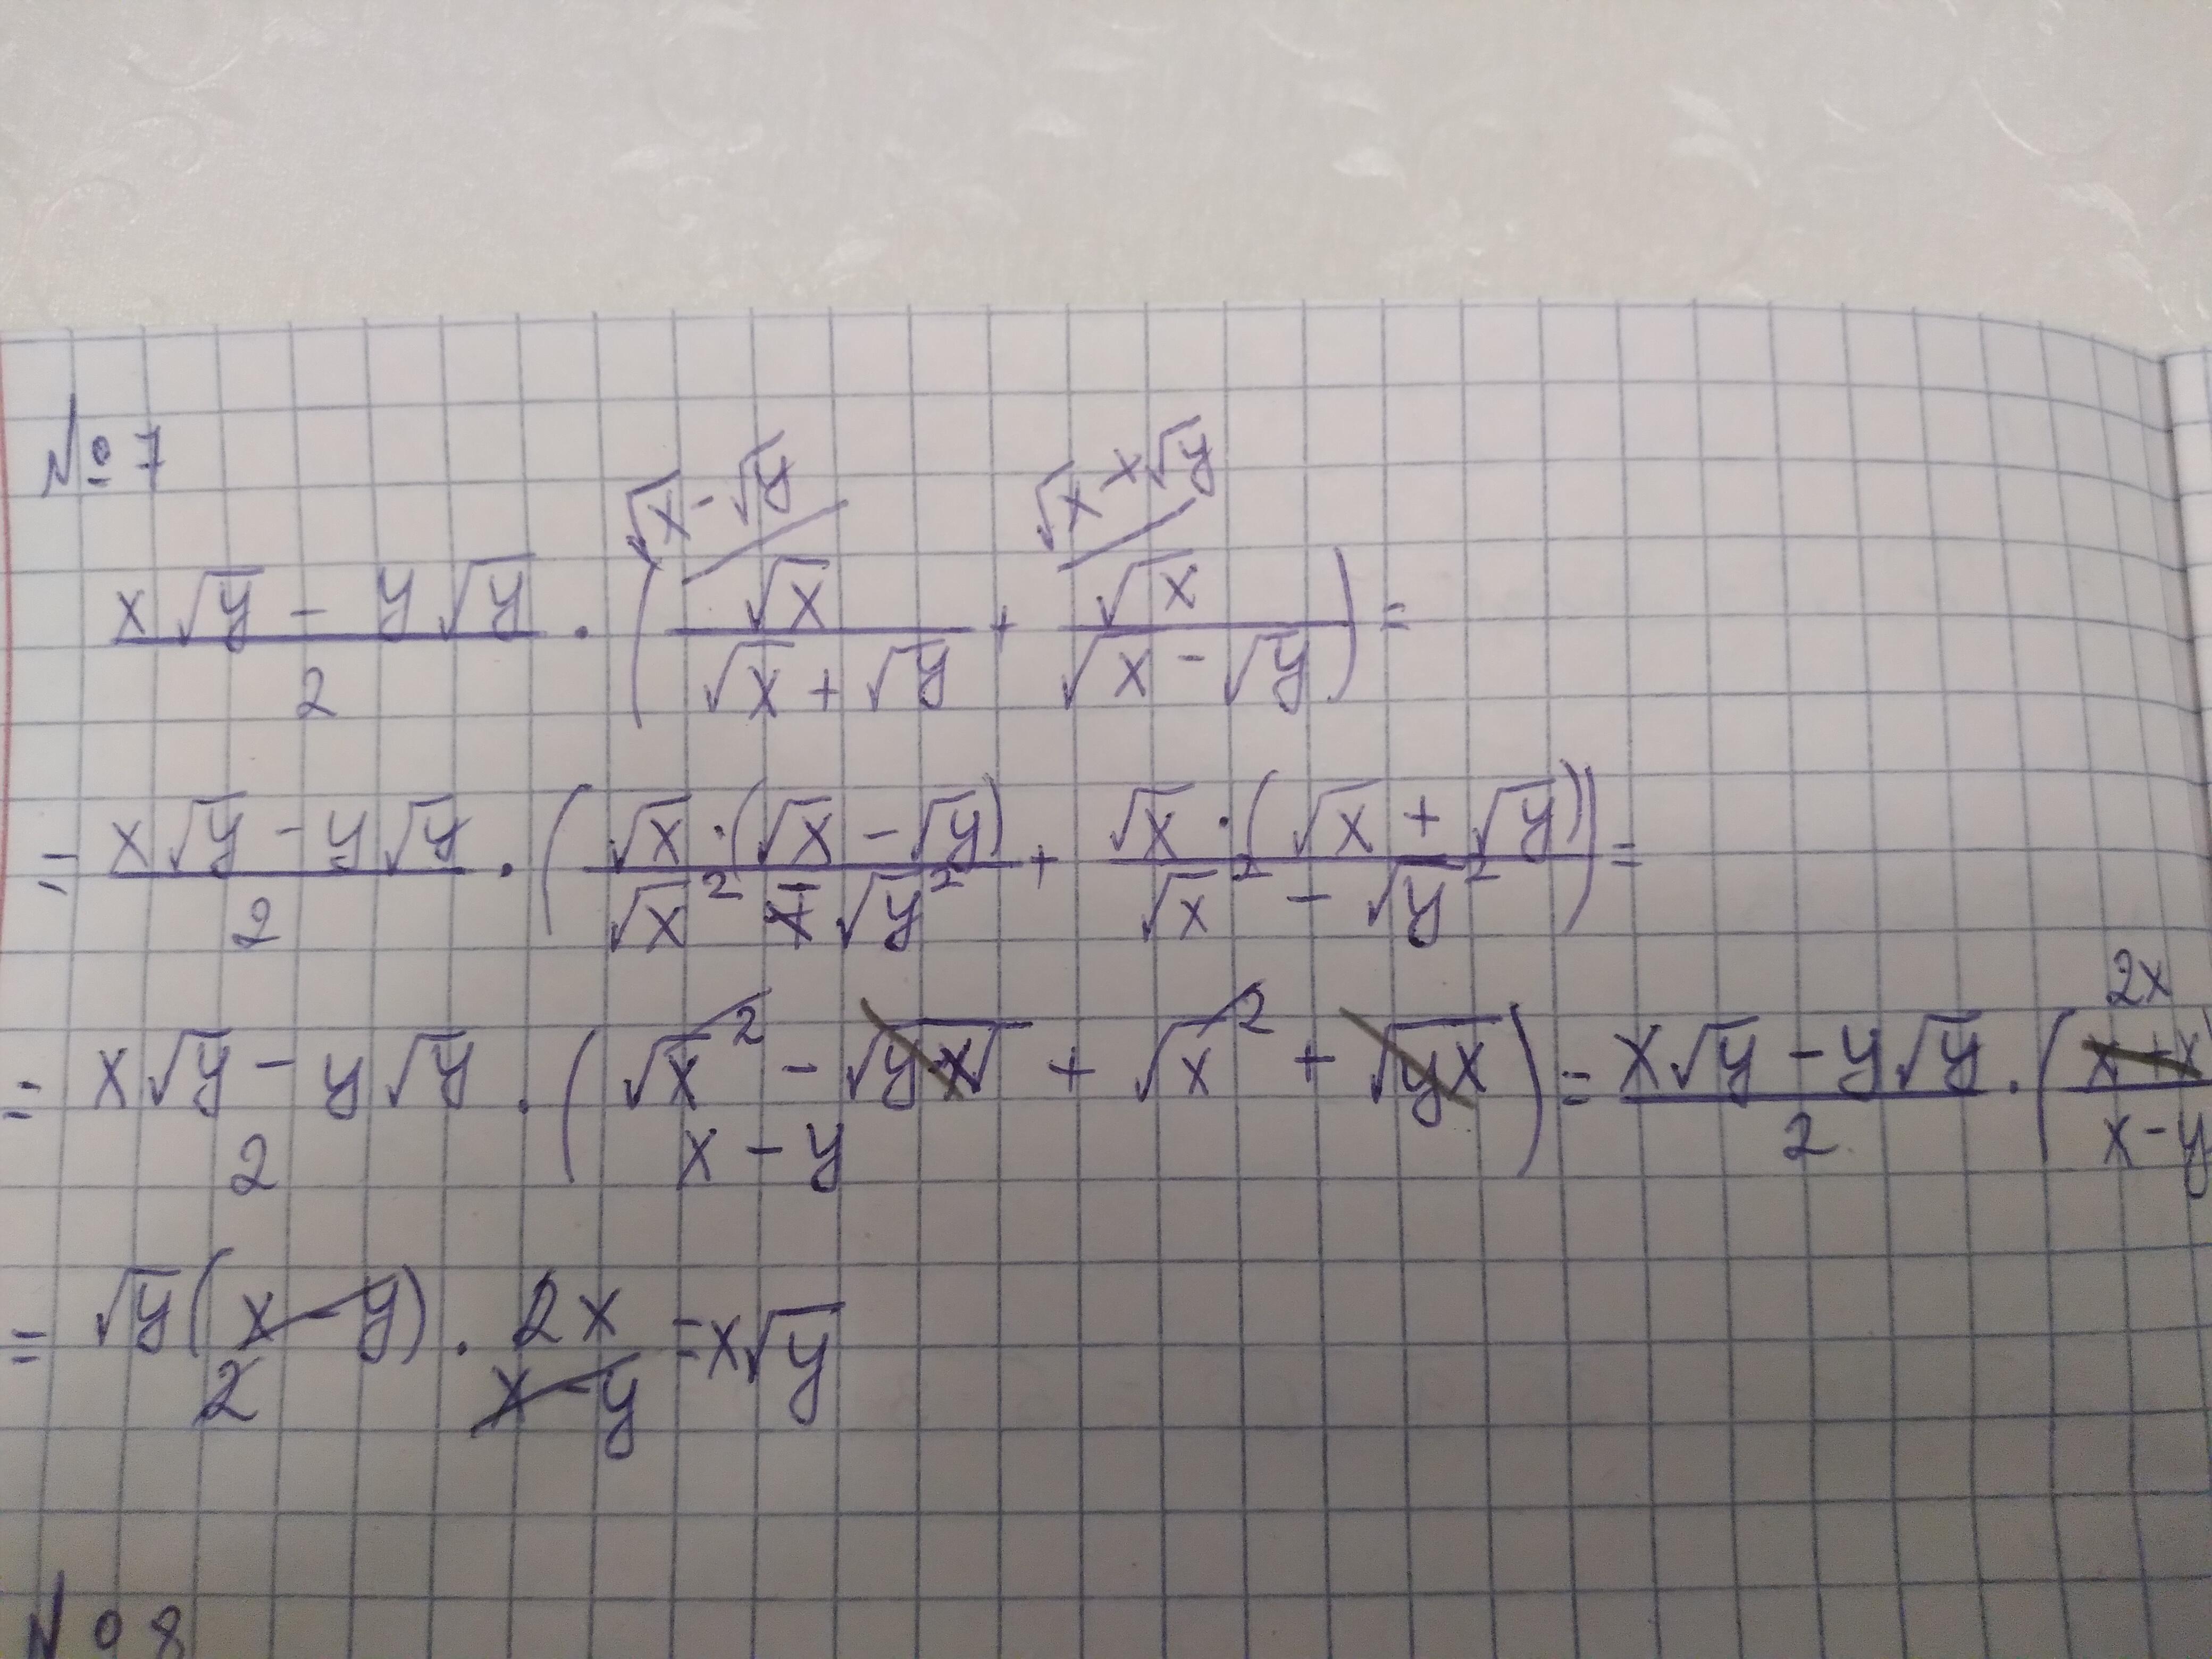 № 7
√x - √y   √x × √y
(x√y - y√y)/2 · (√x/(√x + √y) + √x/(√x - √y)) =
= (x√y - y√y)/2 · (√x · (√x - √y)/(√x² - √y²) + √x · (√x + √y)/(√x² - √y²)) =
= (x√y - y√y)/2 · ((√x² - √yx + √x² + √yx)/(x - y)) = (x√y - y√y)/2 · (2x x+x/(x-y
= √y(x - y)/2 · 2x/(x - y) = x√y
№ 8